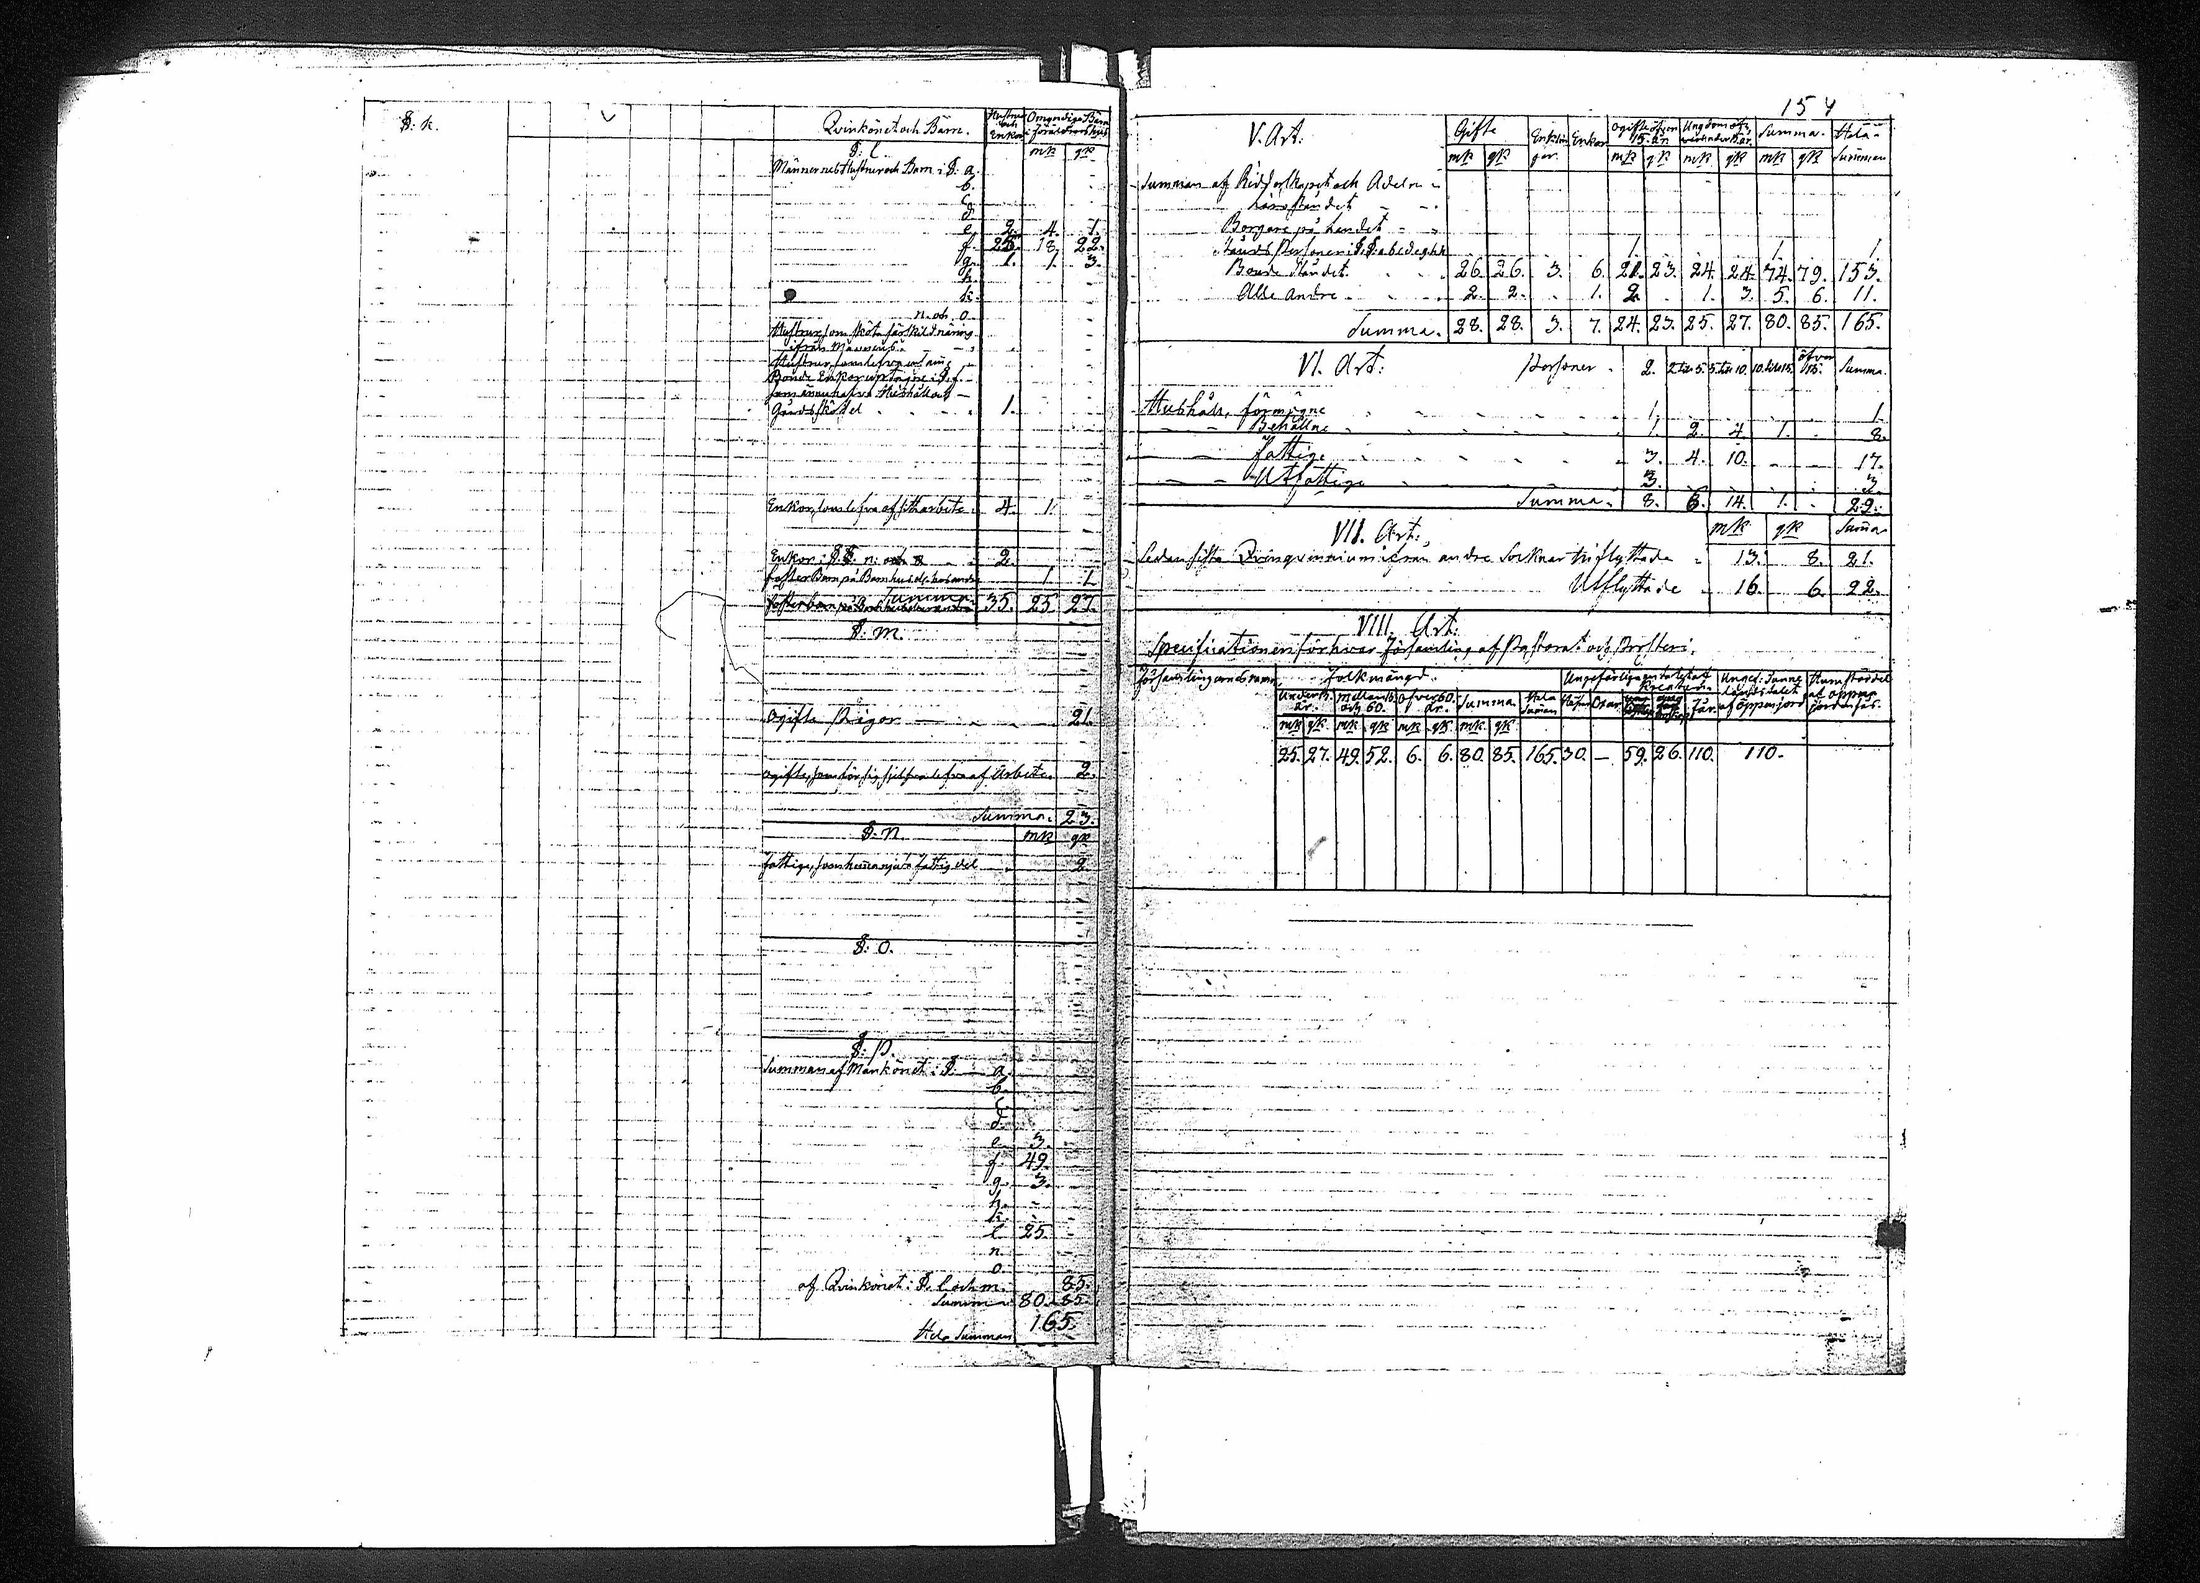 §: k.
Qvinkönet och Barn. Hustrur och Enkor Omyndiga Barn i föräldrars hus
mk qk
§: l.
Männernes Hustrur och Barn i §: a.
b.
c.
d.
e. 2. 4. 1.
f. 25. 18. 22.
g. 1. 1. 3.
h.
k.
n. och o.
Hustrur, som sköta särskild näring
ifrån Männens
Gårdsskötsel 1.
Enkor, som lefva af sitt arbete 4. 1.
Enkor i §§. n. och o 2.
foster Barn på Barnhusets kostnad 1. 1.
Summa. 35. 25. 27.
§. m.
Ogifta Pigor 21.
Ogifta, som för sig sjelfva lefva af Arbete 2.
Summa. 23.
§. n. mk qk
fattige, som hemma njuta fattigdel 2.
§. O.
§: P.
Summan af Mankönet i §: a.
b.
c.
d.
e. 3.
f. 49.
g. 3.
h.
k.
l. 25.
n.
o.
af Qvinkönet i §. l och m. 85.
Summa 80. 85.
Hela Summan 165.
154
V. Art: Gifte Enklingar. Enkor Ogifte öfver 15. år Ungdom Summa. Hela Summan
mk qk mk qk mk qk mk qk
Summan af Ridderskapet och Adeln
Läroståndet
Borgare på landet
Stånds Personer i §§. a b c d e g h k 1. 1. 1
Bonde Ståndet. 26. 26. 3. 6. 21. 23. 24. 24. 74. 79. 153.
Alle Andre 2. 2. 1. 2. 1. 3. 5. 6. 11.
Summa. 28. 28. 3. 7. 24. 23. 25. 27. 80. 85. 165.
VI. Art: Personer 2. 2 till 5. 5 till 10. 10 till 15. öfver 15. Summa.
Hushåll, förmögne 1. 1.
Behållne 1. 2. 4. 1. 8.
fattige 3. 4. 10. 17.
Utfattige 3. 3.
Summa. 8. 6. 14. 1. 29.
VII. Art: mk qk Summa
Sedan sista Qvinqvennium ifrån andre Socknar Inflyttade 13. 8. 21.
Utflyttade 16. 6. 22.
VIII. Art:
Specificationen för hvar församling af Pastorat och Prosteri.
Församlingarnes namn. folkmängd. Ungefärliga antalet af Kreatur. Ungef: Tunne landstalet af öppen jord
under 15. år. mellan 15. och 60. öfver 60. år. Summa. Hela Summan Hästar Oxar Får
mk qk mk qk mk qk mk qk
25. 27. 49. 52. 6. 6. 80. 85. 165. 30. — 59. 26. 110. 110.